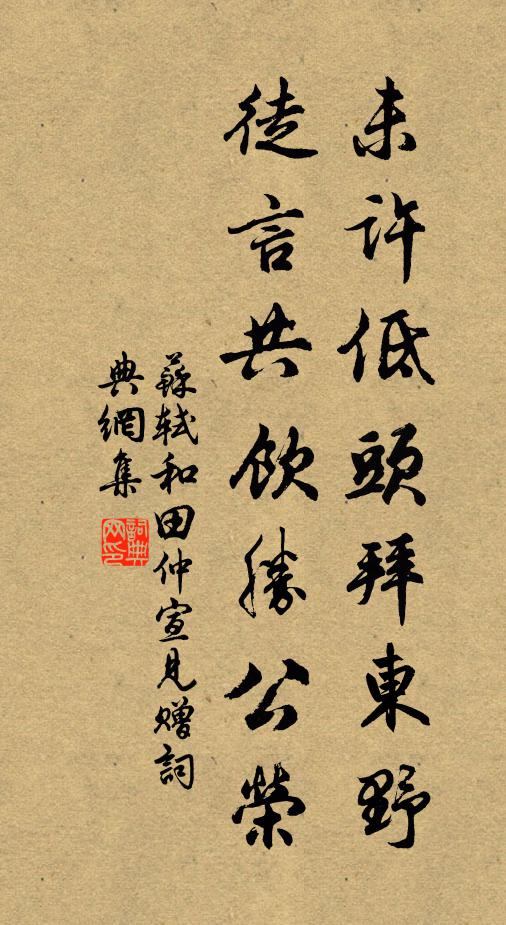 未許低頭拜東野
徒言共飲勝公榮
蘇軾和田仲宣見贈詞
典網集
詞典網印